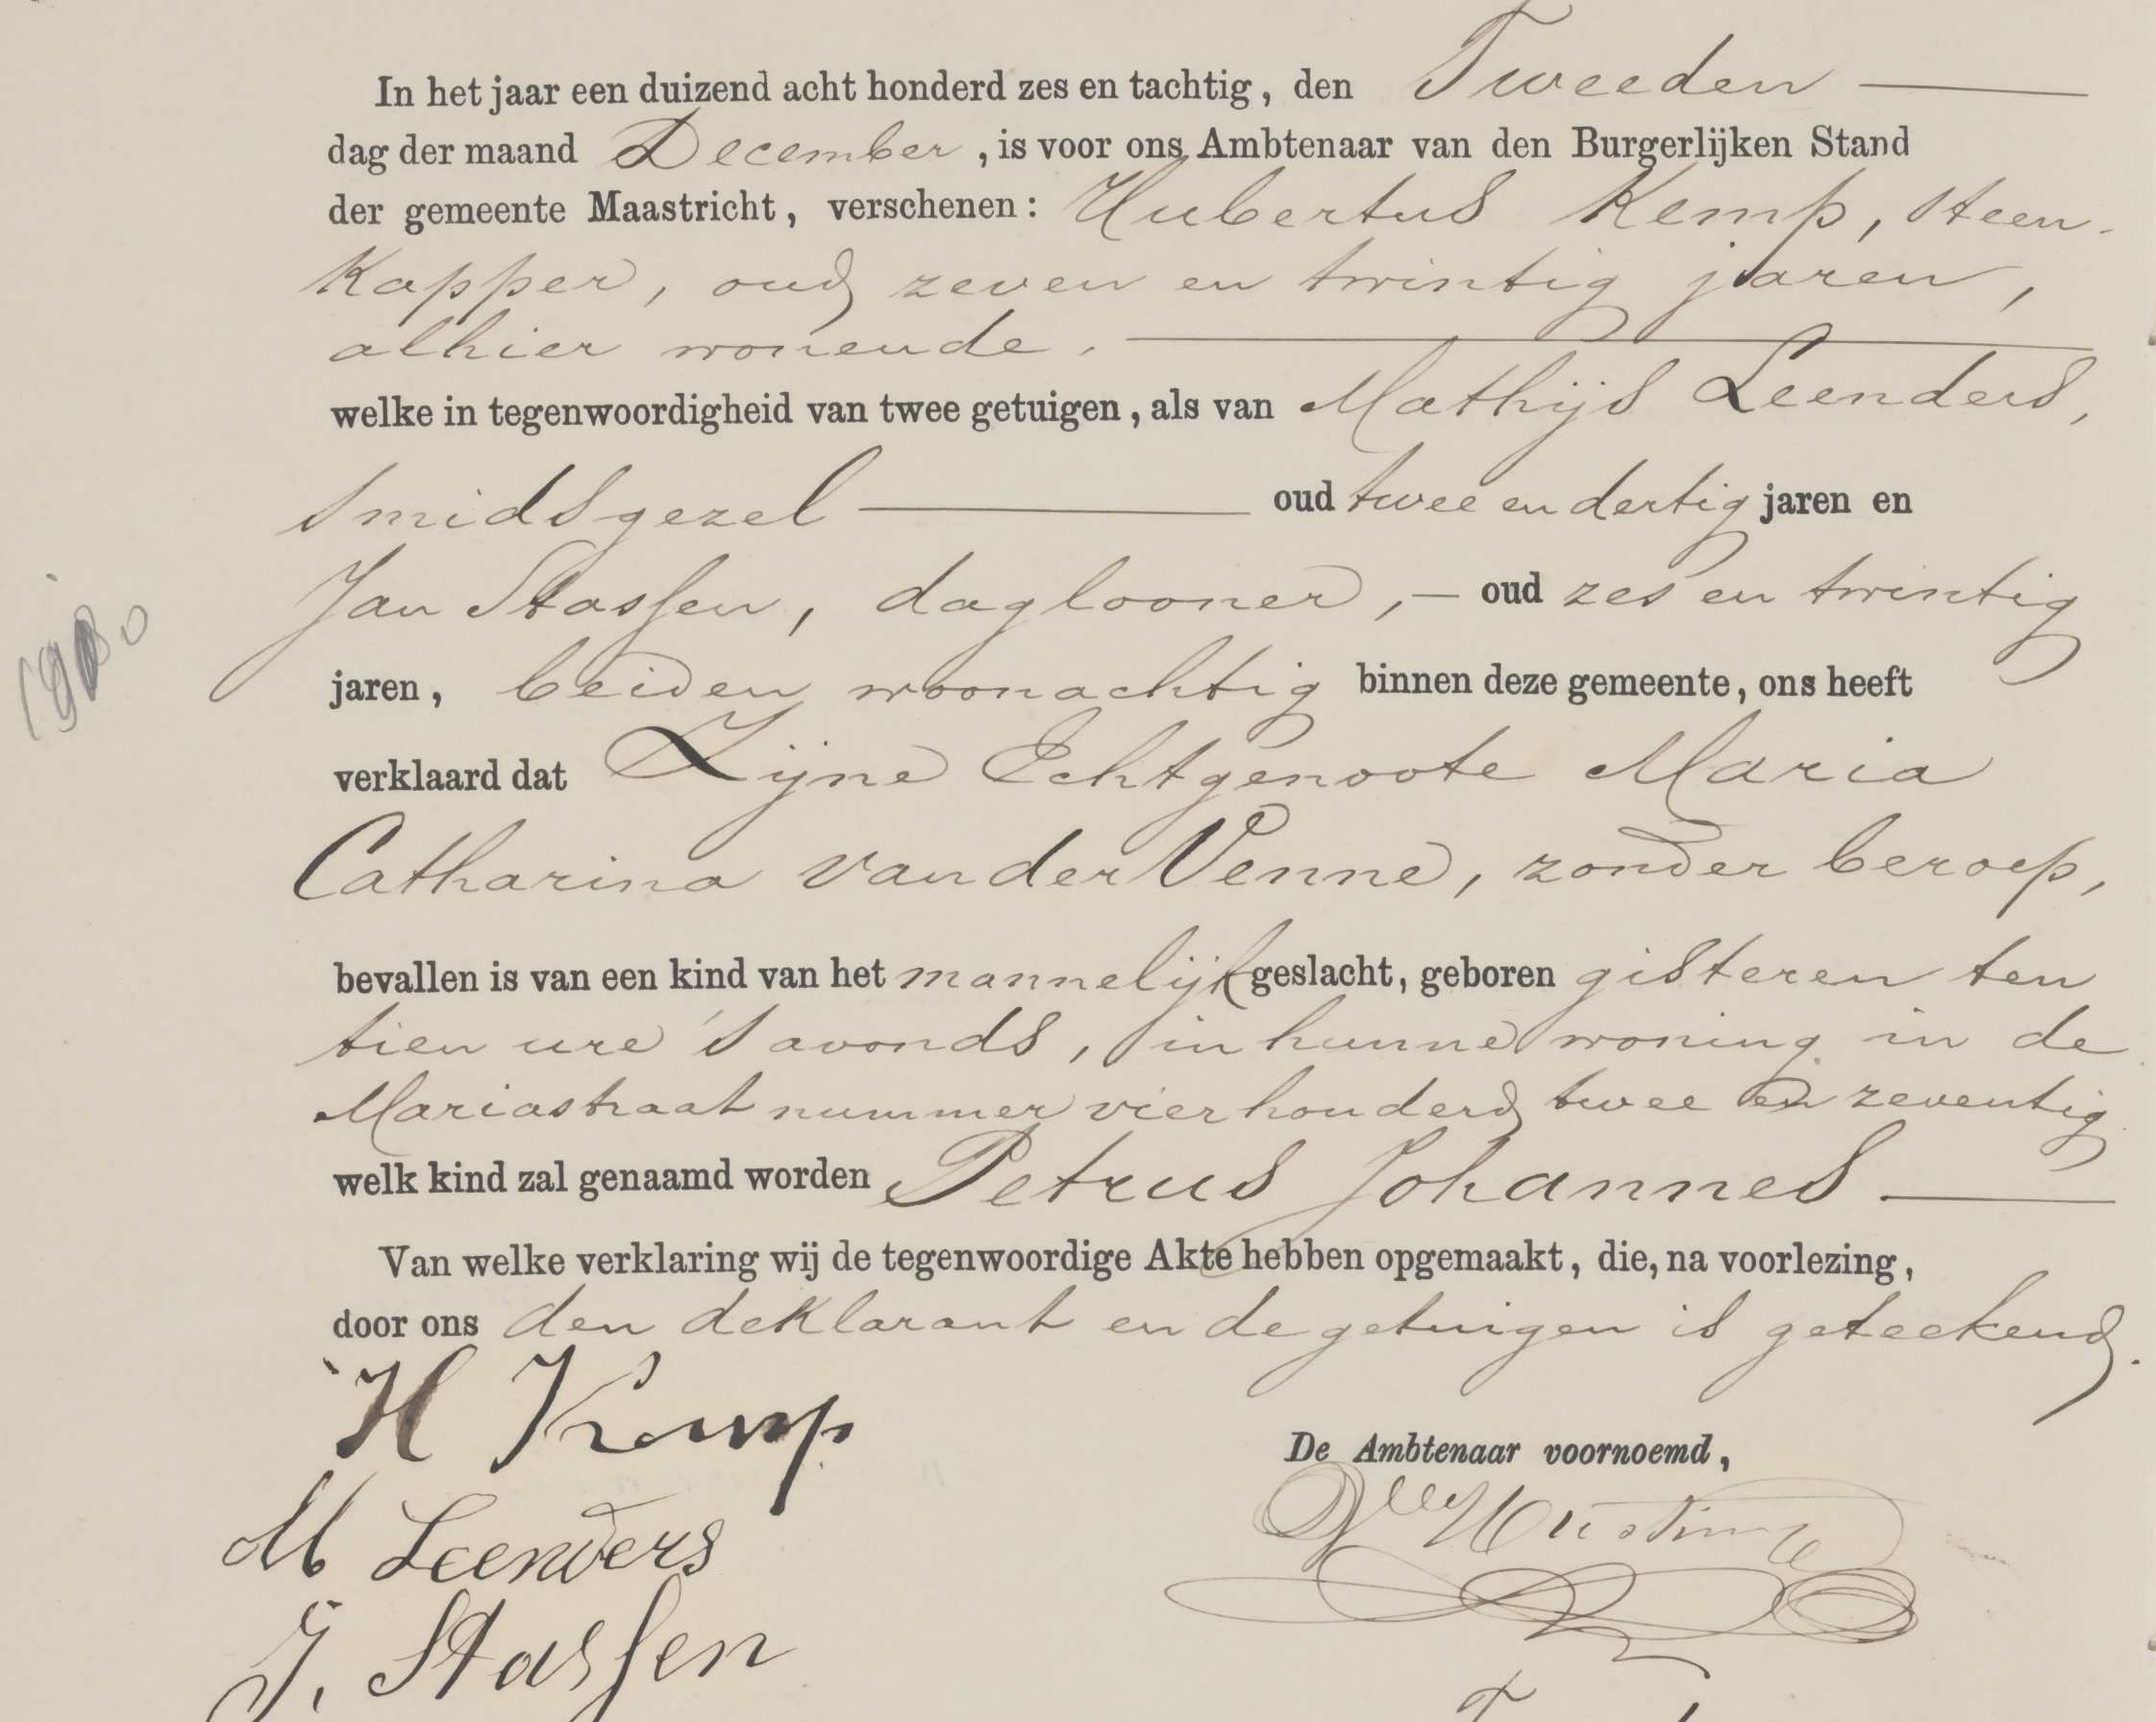 In het jaar een duizend acht honderd zes en tachtig, den Tweeden
dag der maand December, is voor ons Ambtenaar van den Burgerlijken Stand
der gemeente Maastricht, verschenen: Hubertus Kemp, steen-
Kapper, oud zeven en twintig jaren,
alhier wonende.
welke in tegenwoordigheid van twee getuigen, als van Mathijs Leenders,
smidsgezel oud twee en dertig jaren en
Jan Stassen, daglooner, – oud zes en twintig
jaren, beiden woonachtig binnen deze gemeente, ons heeft
verklaard dat Zijne Echtgenoote Maria
Catharina van der Venne, zonder beroep,
bevallen is van een kind van het mannelijk geslacht, geboren gisteren ten
tien ure 's avonds, in hunne woning in de
Mariastraat nummer vierhonderd twee en zeventig
welk kind zal genaamd worden Petrus Johannes
Van welke verklaring wij de tegenwoordige Akte hebben opgemaakt, die, na voorlezing,
door ons den deklarant en de getuigen is geteekend.
H Kemp
De Ambtenaar voornoemd,
M Leenders
J. Stassen